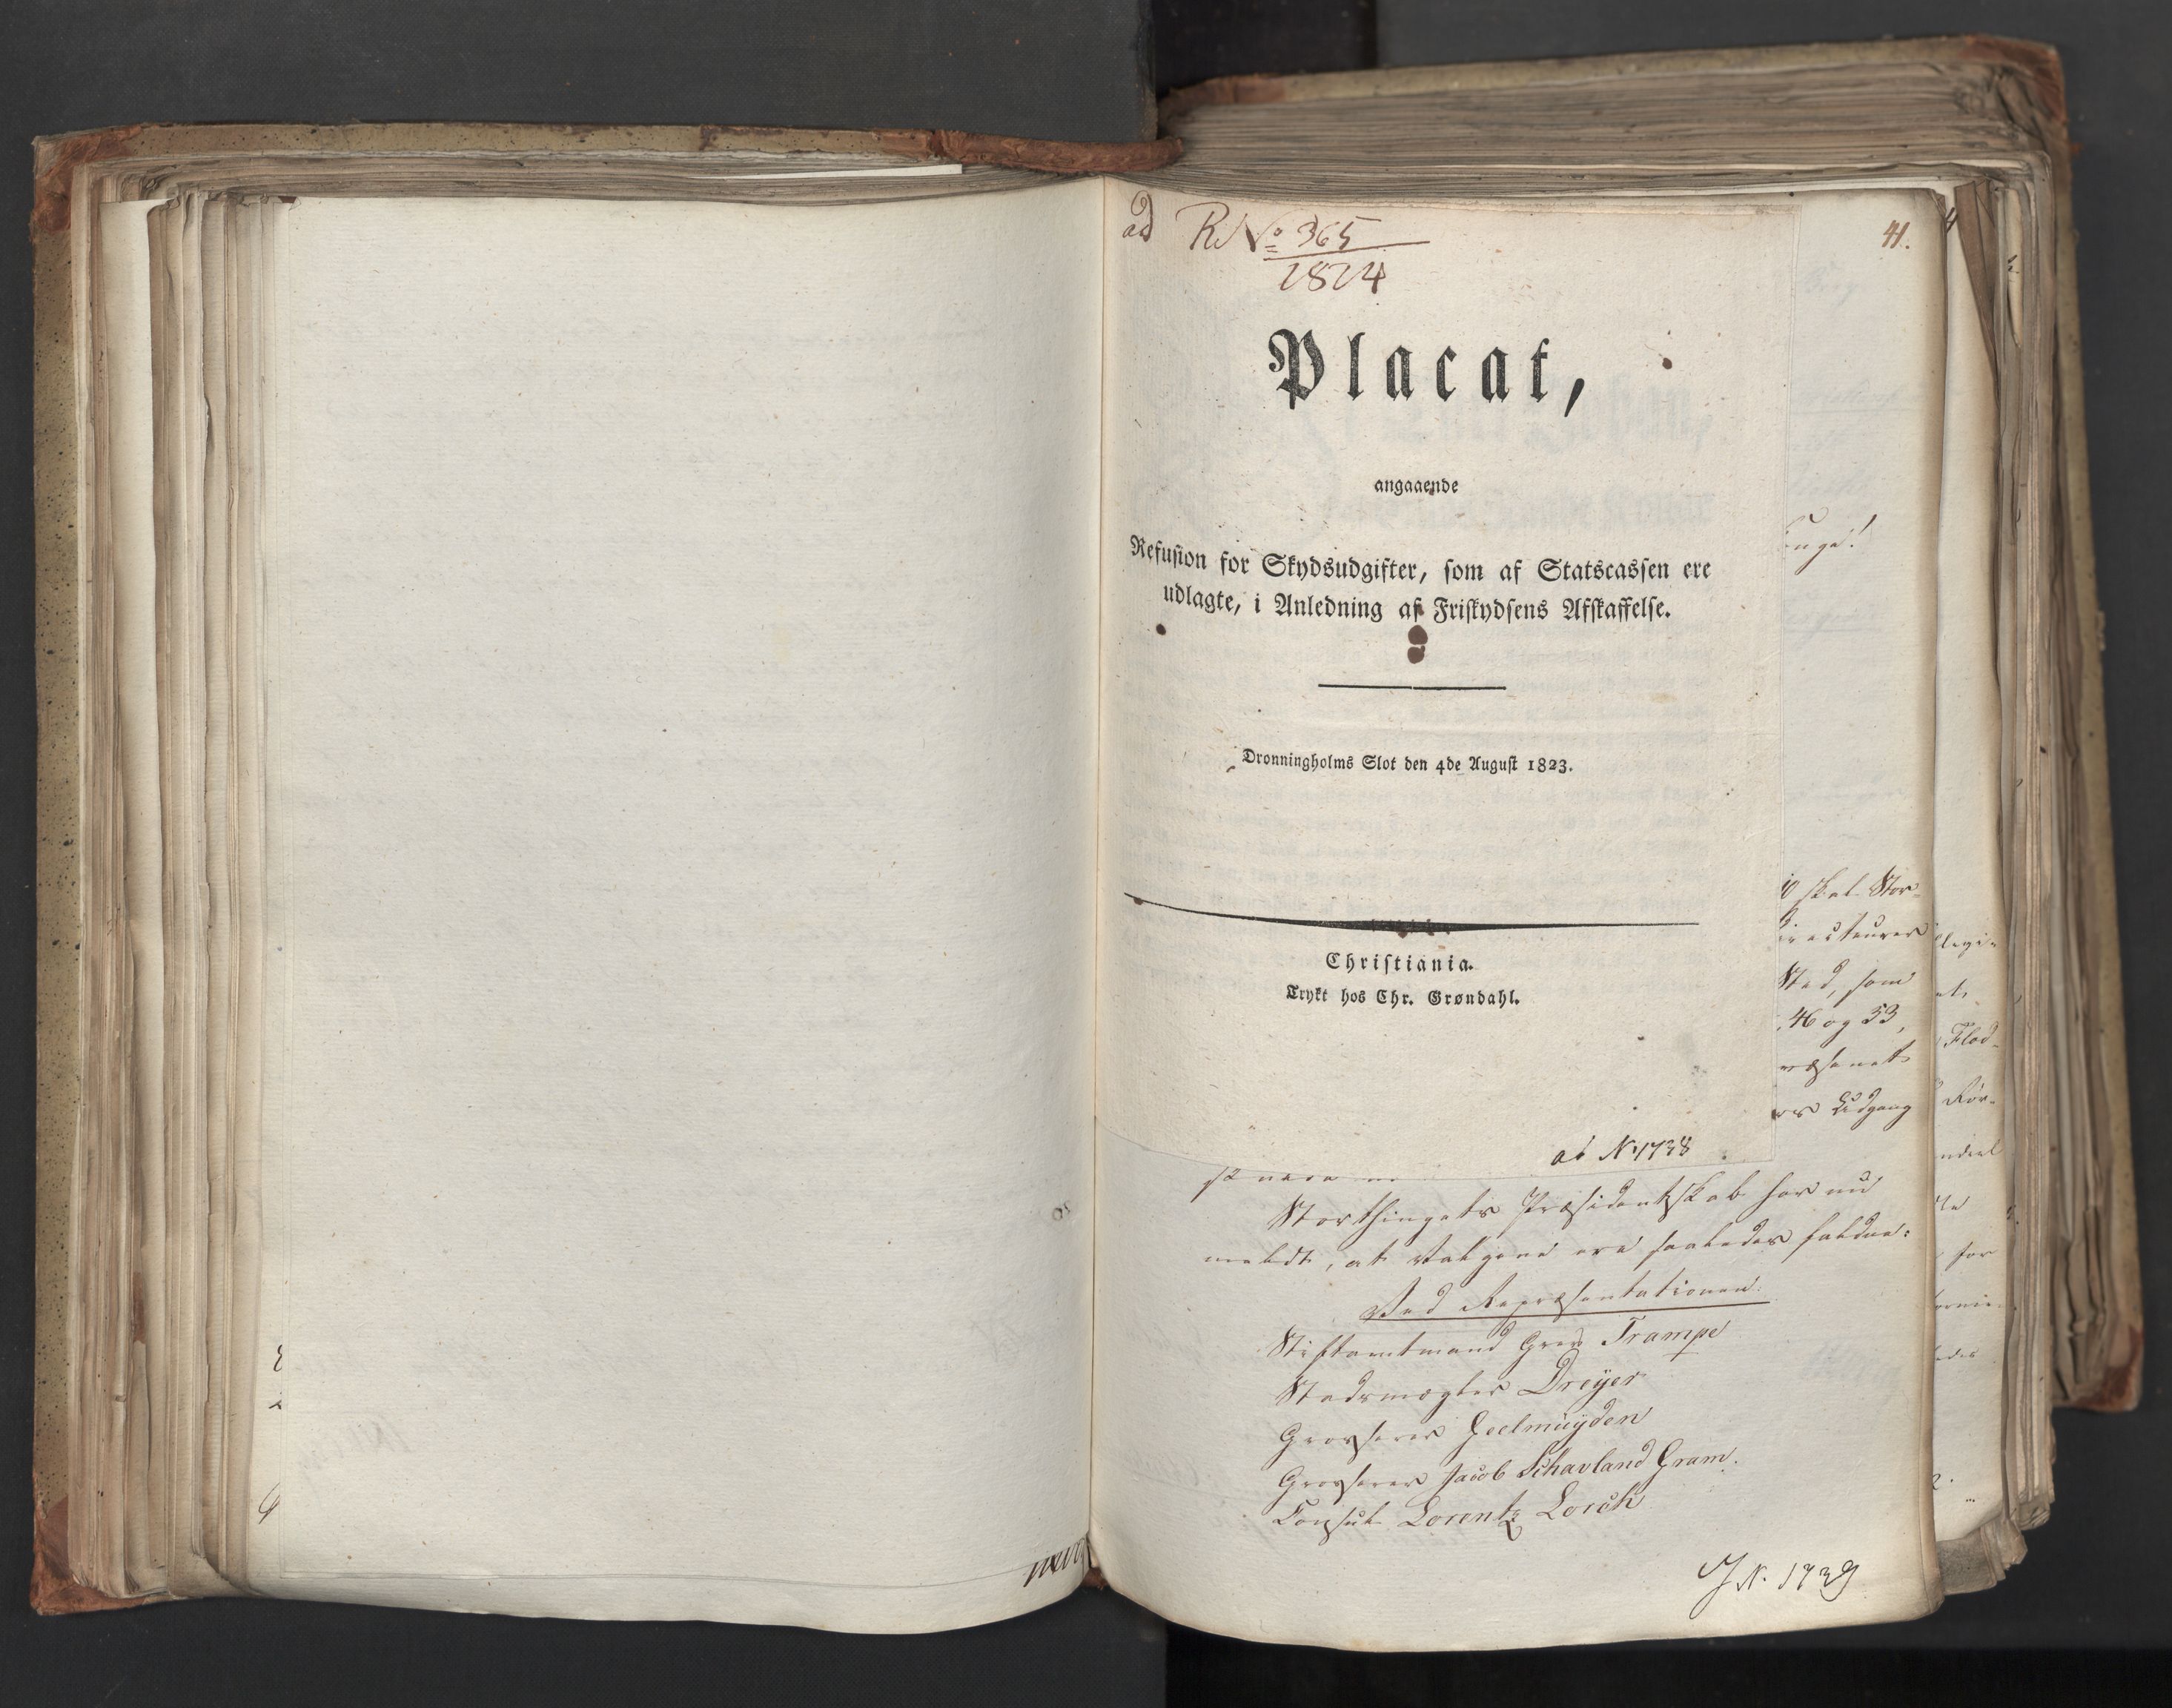 ad R. No 365
1824
41.
Placat,
angaaende
Refusion for Skydsudgifter, som af Statscassen ere
udlagte, i Anledning af Friskydsens Afskaffelse.
Dronningholms Slot den 4de August 1823.
Christiania.
Trykt hos Chr. Grøndahl.
ad N 1738
skal Stor-
Directeurer
Sted, som
46 og 53,
Udgang
Storthingets Præsidentskab har nu
meldt, at Valgene ere saaledes faldne:
Ved Repræsentationen:
Stiftamtmand Grev Trampe
Stadsmægler Dreyer
Grosserer Geelmuyden
Grosserer Jacob Schavland Gram.
Consul Lorentz Lorck
J. N. 1739